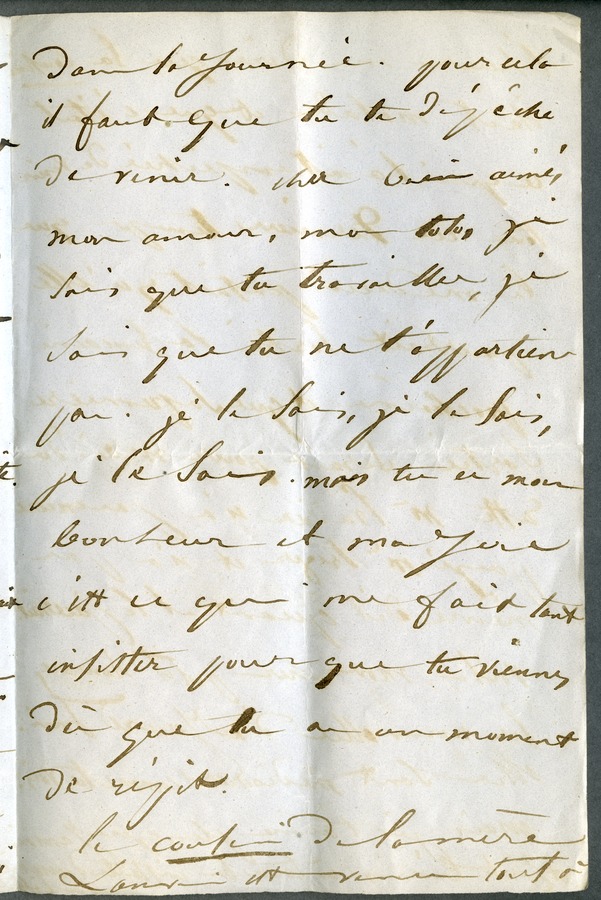 dans la journée. pour cela
il faut que tu te dépêche
de venir. cher bien aimé,
mon amour, mon toto, je
sais que tu travailles, je
sais que tu ne t'appartiens
pas. je le sais, je le sais,
je le sais. mais tu es mon
bonheur et ma joie
c'est ce qui me fait tant
insister pour que tu viennes
dès que tu as un moment
de répit.
le cousin de la mère
Lanvin est venu tout à